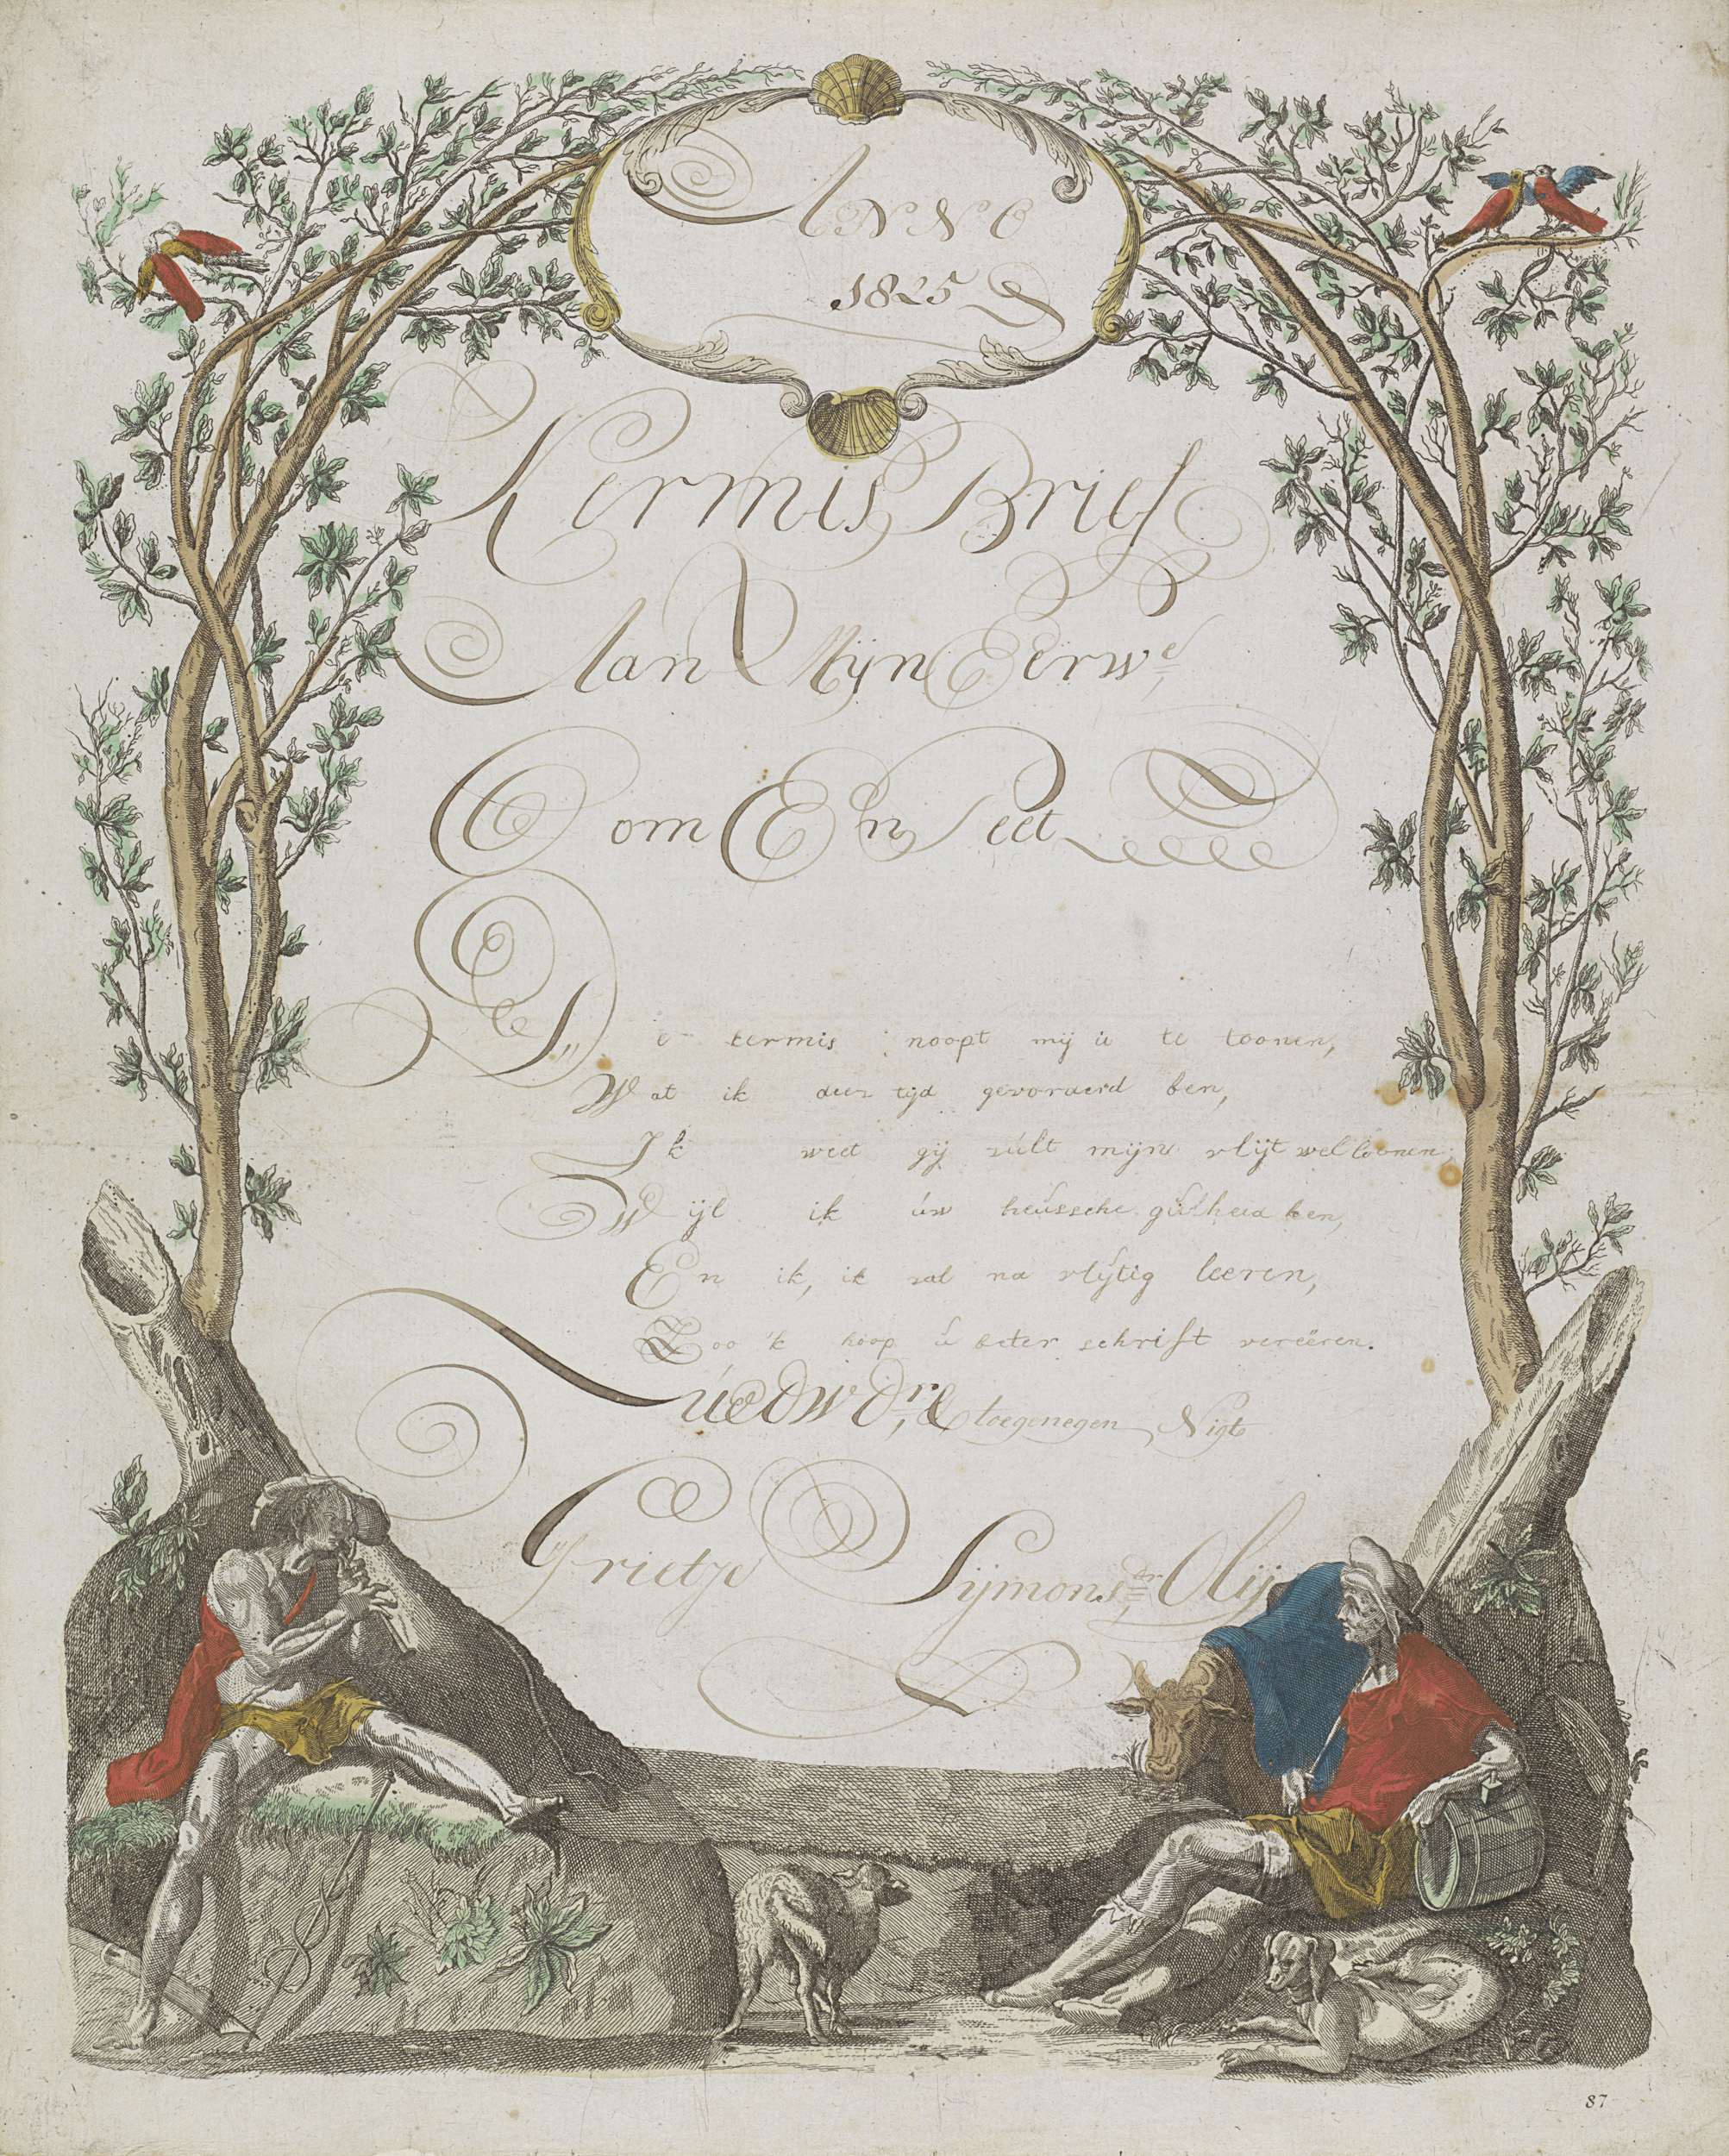 ANNO
1825
Kermis Brief
Aan Mijn Eerwd
Oom En Peet
De kermis noopt mij ú te toonen,
Wat ik deez tijd gevorderd ben,
Ik weet gij zúlt mijne vlijt wel loonen,
Wijl ik úw heússche gúlheid ken,
En ik, ik zal na vlijtig leeren,
Zoo 'k hoop ú beter schrift vereëren.
toegenegen Nigt
Grietje Sijmonsdr Olij
87